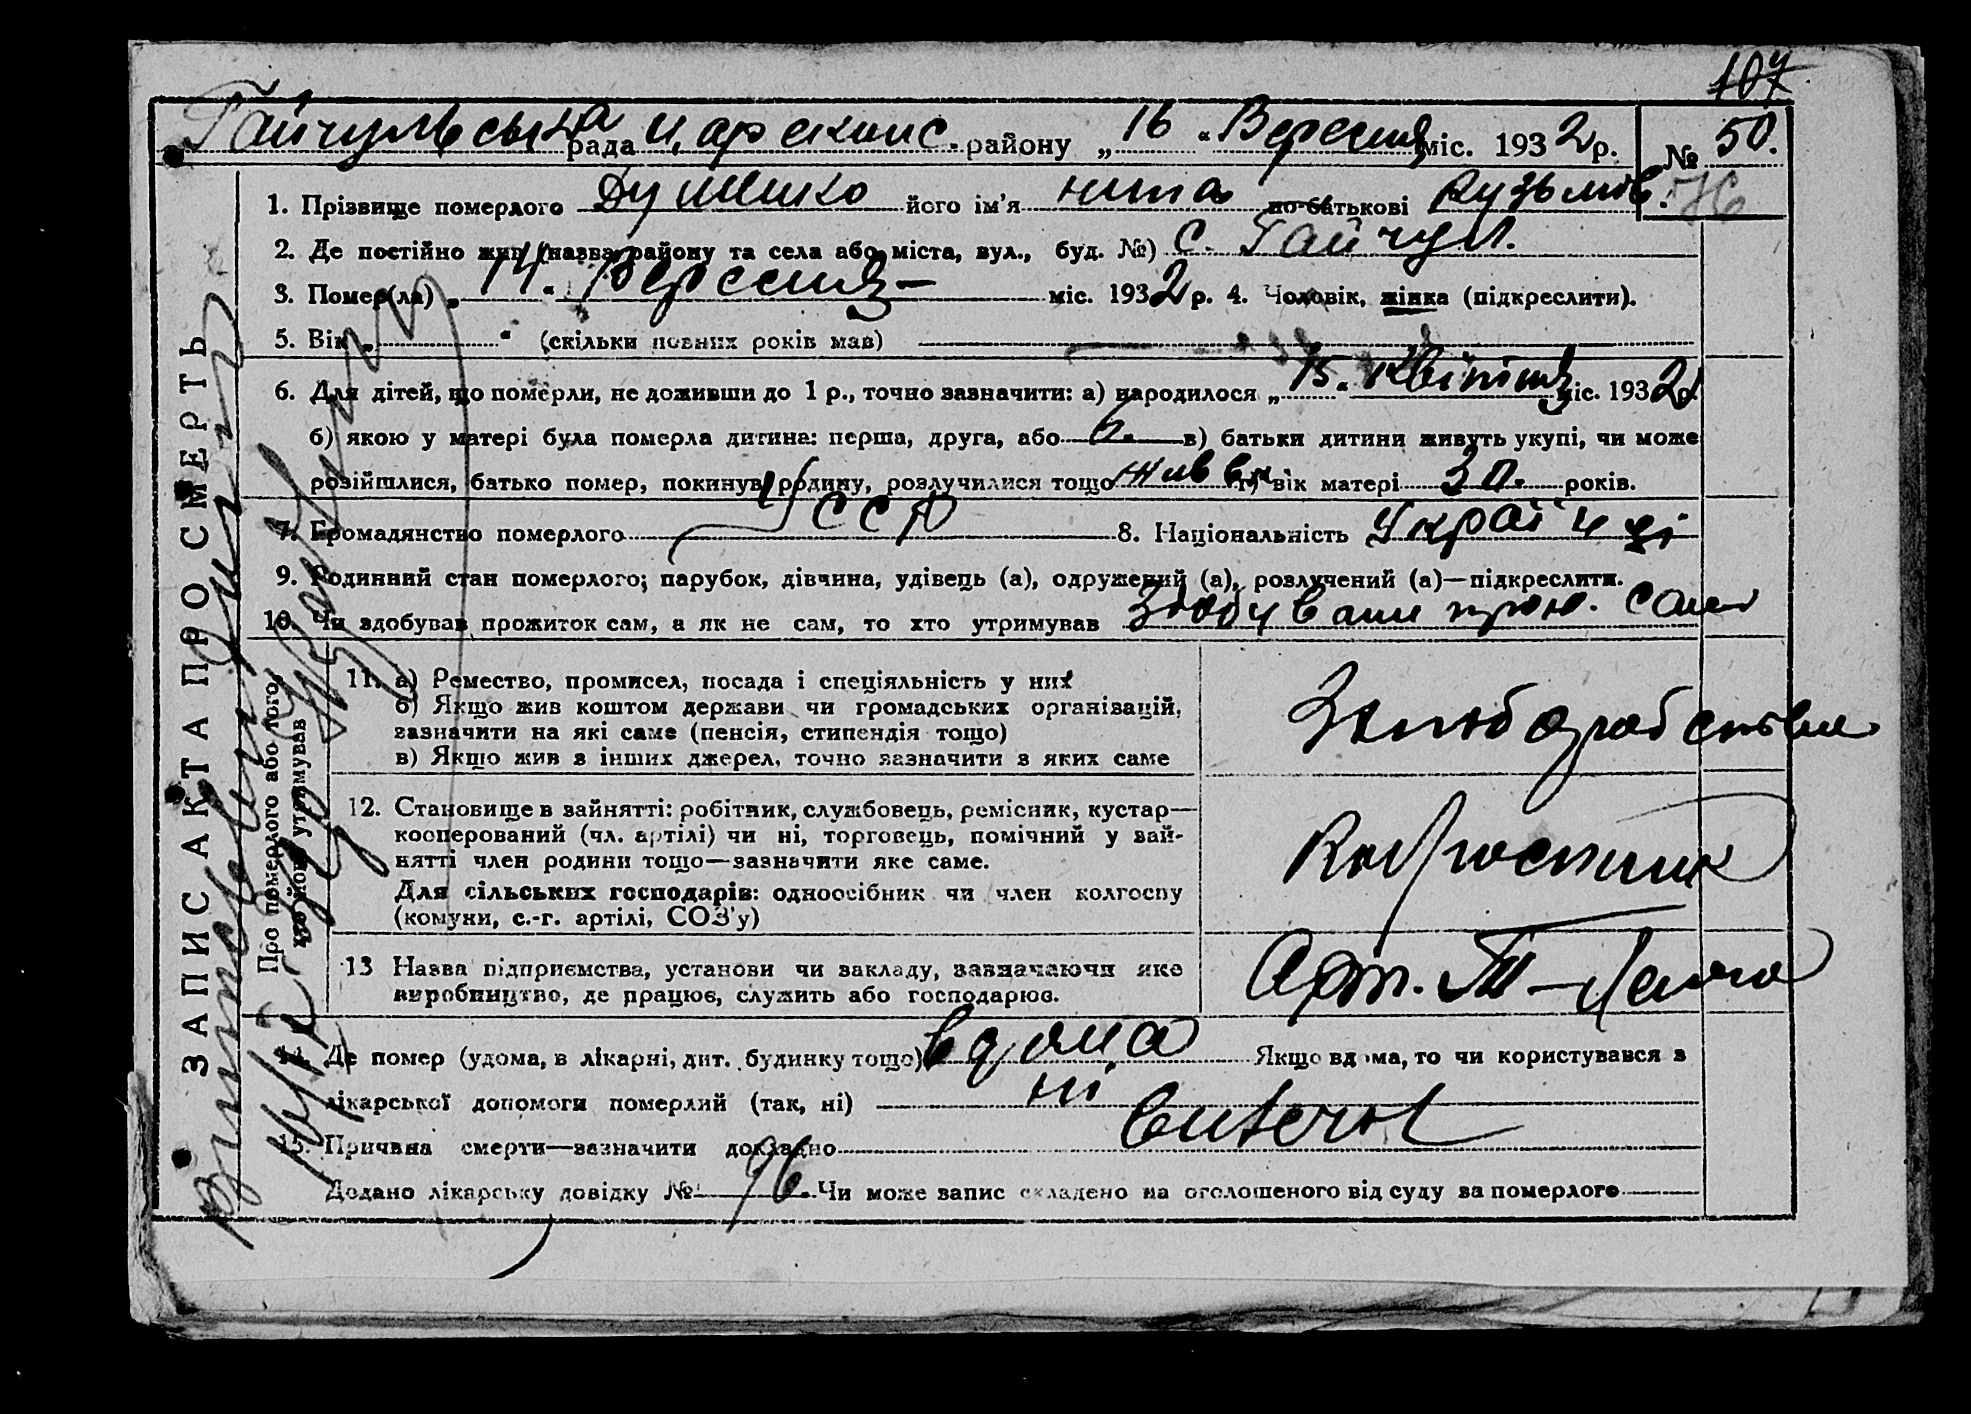 107
Гайчульська рада Царекон с. району „ 16 " Вересня міс. 1932 р. № 50.
1. Прізвище померлого Душенко його ім'я нина по-батькові Кузьмів. Ж
2. Де постійно жив (назва району та села або міста, вул., буд. №) с. Гайчул.
3. Помер(ла) „ 14. " Вересня – міс. 1932 р. 4. Чоловік, жінка (підкреслити).
5. Вік „ " (скільки повних років мав)
6. Для дітей, що померли, не доживши до 1 р., точно зазначити: а) народилося „ 15. " Квітня міс. 1932 р.
б) якою у матері була померла дитина: перша, друга, або 6. в) батьки дитини живуть укупі, чи може
розійшлися, батько помер, покинув родину, розлучилися тощо г) вік матері 30. років.
7. Громадянство померлого УССР 8. Національність Україн ці
9. Родинний стан померлого; парубок, дівчина, удівець (а), одружений (а), розлучений (а)—підкреслити.
10. Чи здобував прожиток сам, а як не сам, то хто утримував сам
ЗАПИС АКТА ПРО СМЕРТЬ
Про померлого або того,
хто його утримував
11. а) Ремество, промисел, посада і спеціяльність у них
б) Якщо жив коштом держави чи громадських організацій,
зазначити на які саме (пенсія, стипендія тощо)
в) Якщо жив з інших джерел, точно зазначити з яких саме
12. Становище в зайнятті: робітник, службовець, ремісник, кустар—
кооперований (чл. артілі) чи ні, торговець, помічний у зай-
нятті член родини тощо—зазначити яке саме.
Для сільських господарів: одноосібник чи член колгоспу
(комуни, с.-г. артілі, СОЗ'у)
13 Назва підприємства, установи чи закладу, зазначаючи яке
виробництво, де працює, служить або господарює.
Арт.
14. Де помер (удома, в лікарні, дит. будинку тощо) вдома Якщо вдома, то чи користувався з
лікарської допомоги померлий (так, ні) ні
15. Причина смерти—зазначити докладно
Додано лікарську довідку № 96. Чи може запис складено на оголошеного від суду за померлого